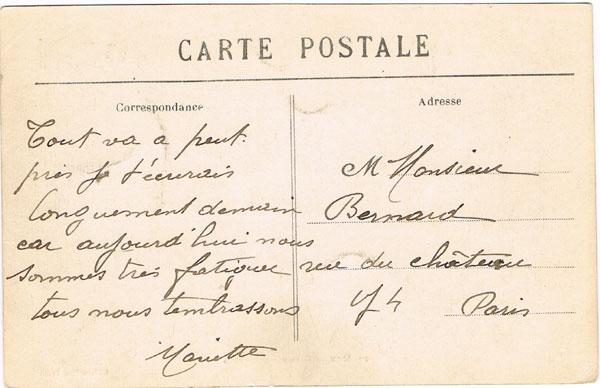 CARTE POSTALE
Correspondance
Tout va a peut.
près Je t'écrirais
longuement demain
car aujourd'hui nous
sommes très fatiguer
tous nous t'embrassons
Mariette
Adresse
M Monsieur
Bernard
rue du château
Paris